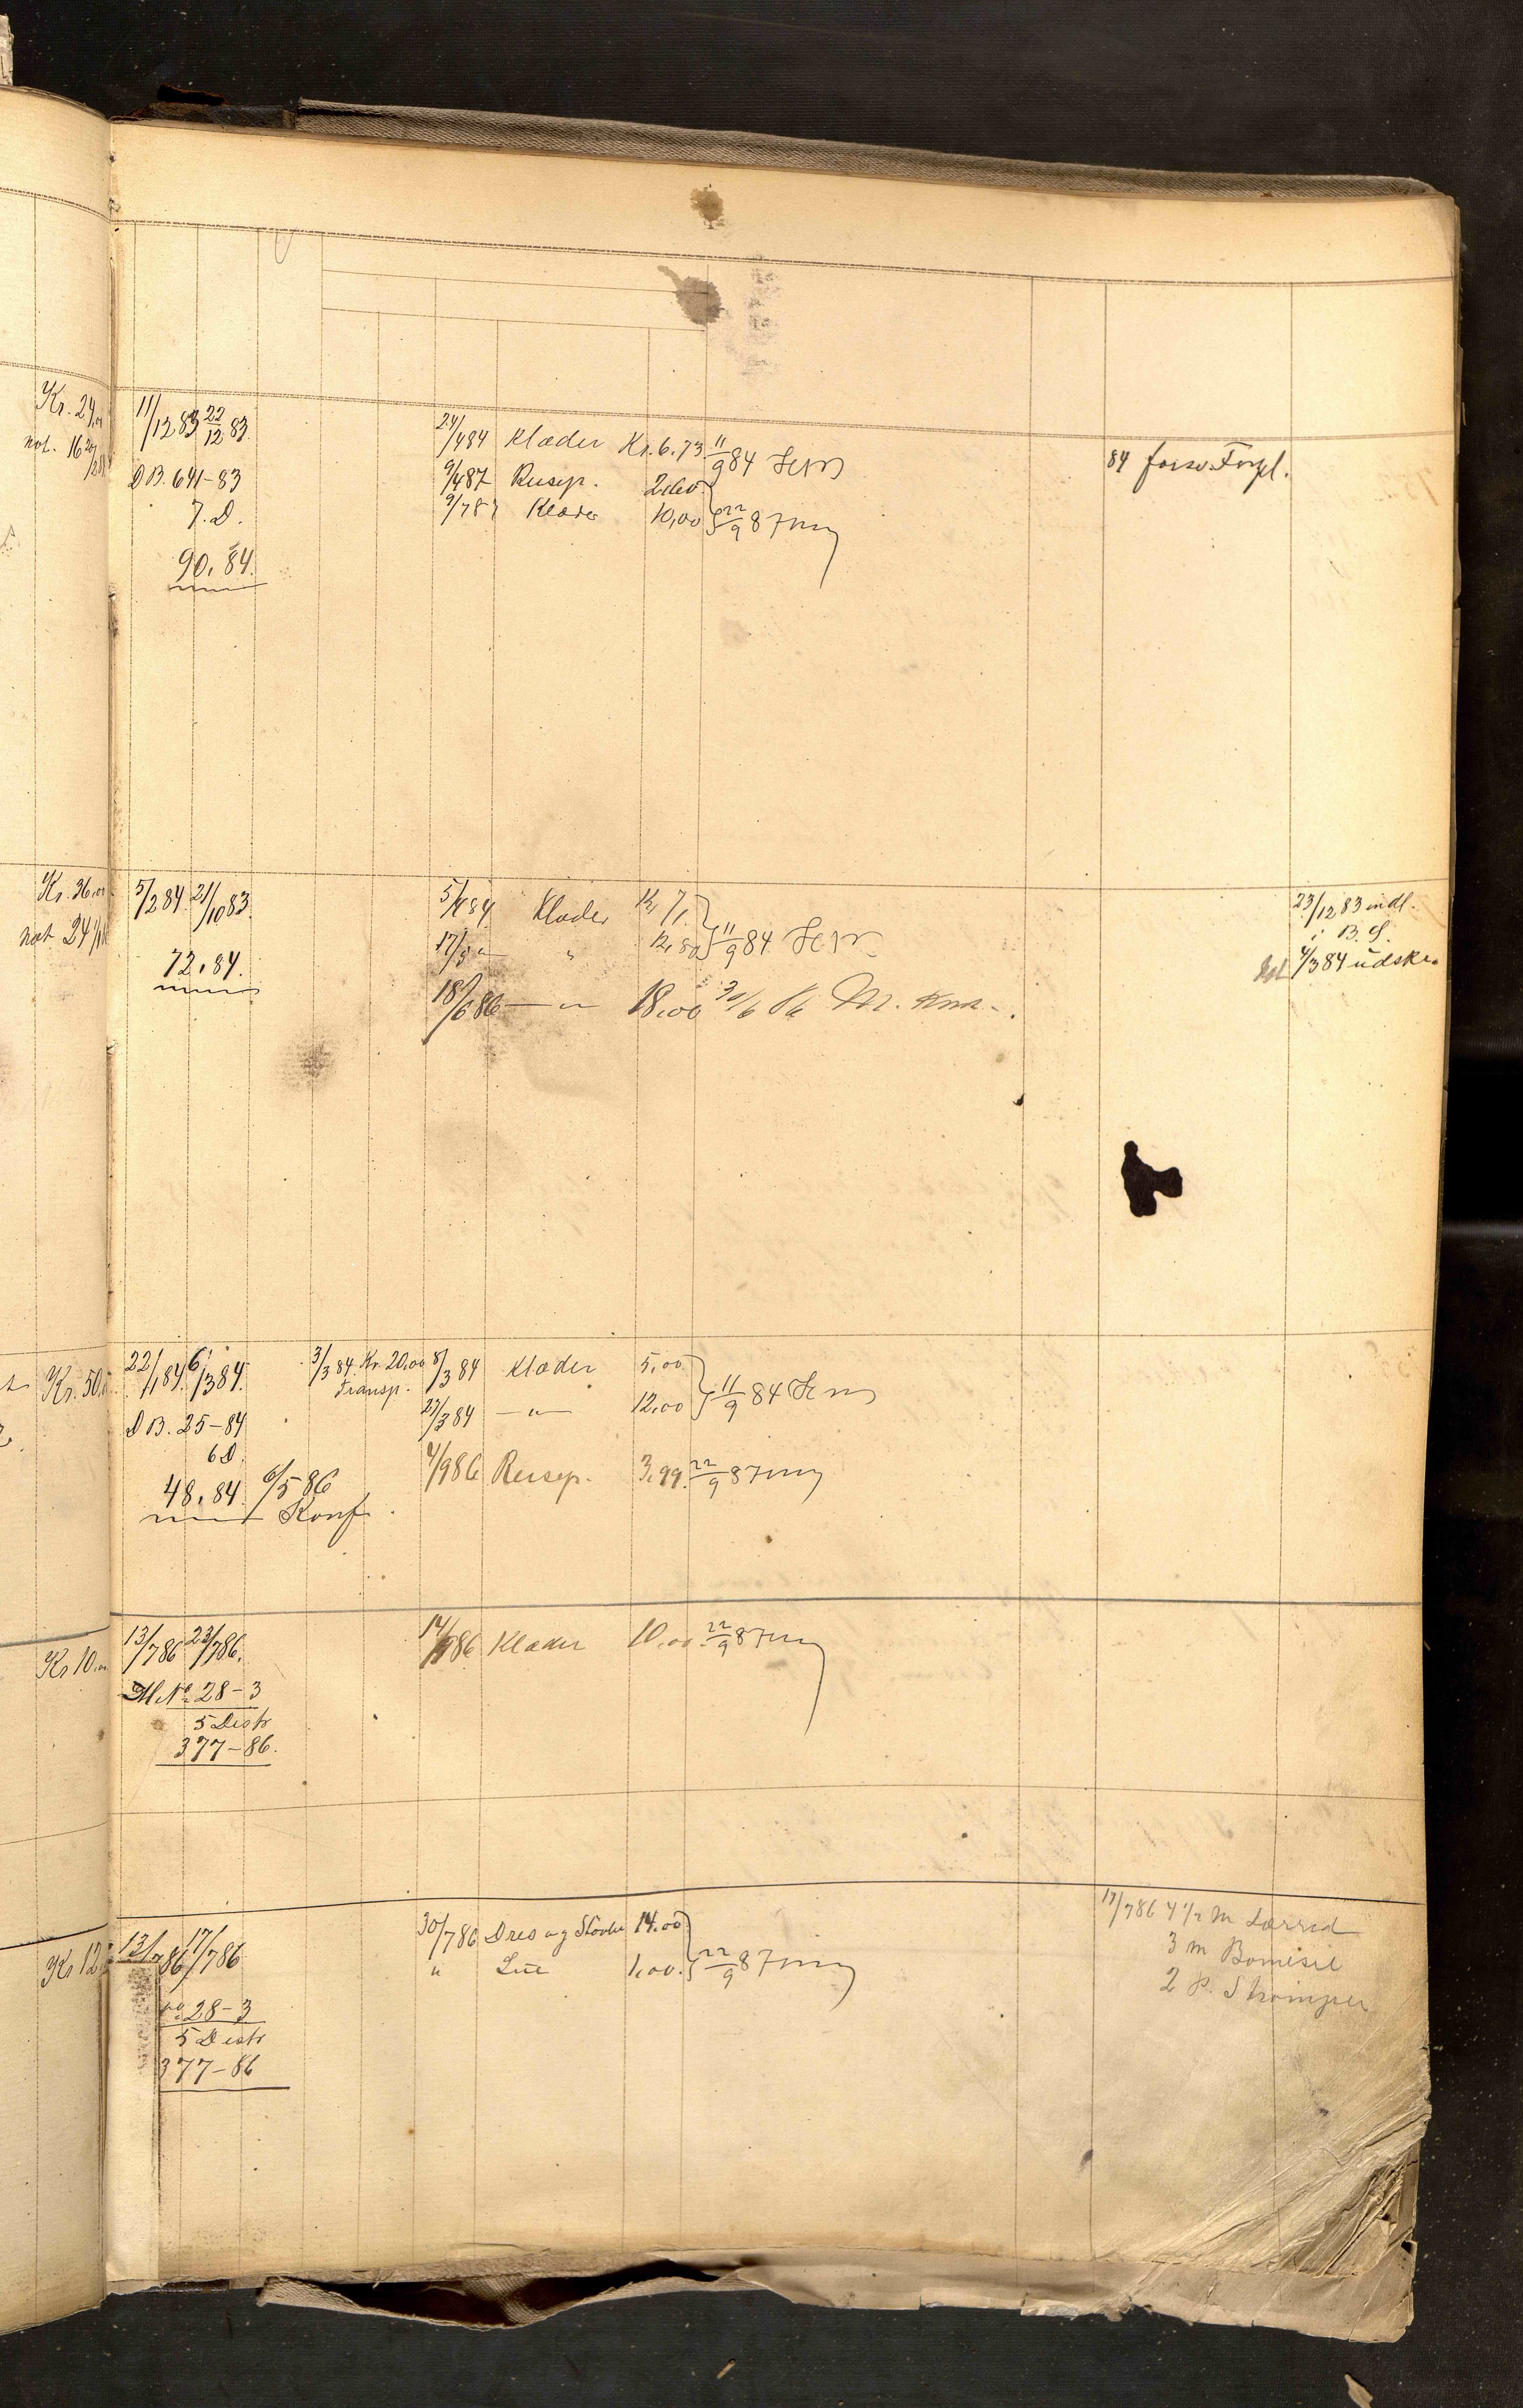 Kr. 24,00 11/12 83 22/12 83 24/4 84 Klæder Kr. 6.73 11/9 84
not. 16
84 forsv. Forpl.
DB. 641-83 9/4 87 Reisep. 2,60
7. D. 9/7 87 Klæder 10,00 22/9 87
90.84.
Kr. 36,00 5/2 84. 21/10 83. 5/4 84 Klæder Kr 7,
23/12 83 indl.
not 24 17/5 " " 12,50 11/9 84
i B.S.
72.84. 4/3 84 udskr.
18/6 86 — " — 18,00 30/6 86 M.
Kr. 50, 22/1 84. 6/3 84. 3/3 84. Kr. 20,00 8/3 84 Klæder 5,00
Transp. 27/3 84 — " — 12,00 11/9 84
DB. 25-84
6 D. 4/9 86 Reisep. 3,99. 22/9 87
48.84. 6/5 86
Konf.
Kr 10,00 13/7 86 23/7 86. 14/9 86 Klæder 10,00. 22/9 87
No. 28-3
5 Distr
377-86.
Kr 12 13/7 86 17/7 86 30/7 86 Dres og Skoder 14.00
17/7 86 4 1/2 m Lærred
" Lue 1,00. 22/9 87
3 m Bomesie
2 P. Strømper
No. 28-3
5 Distr
377-86